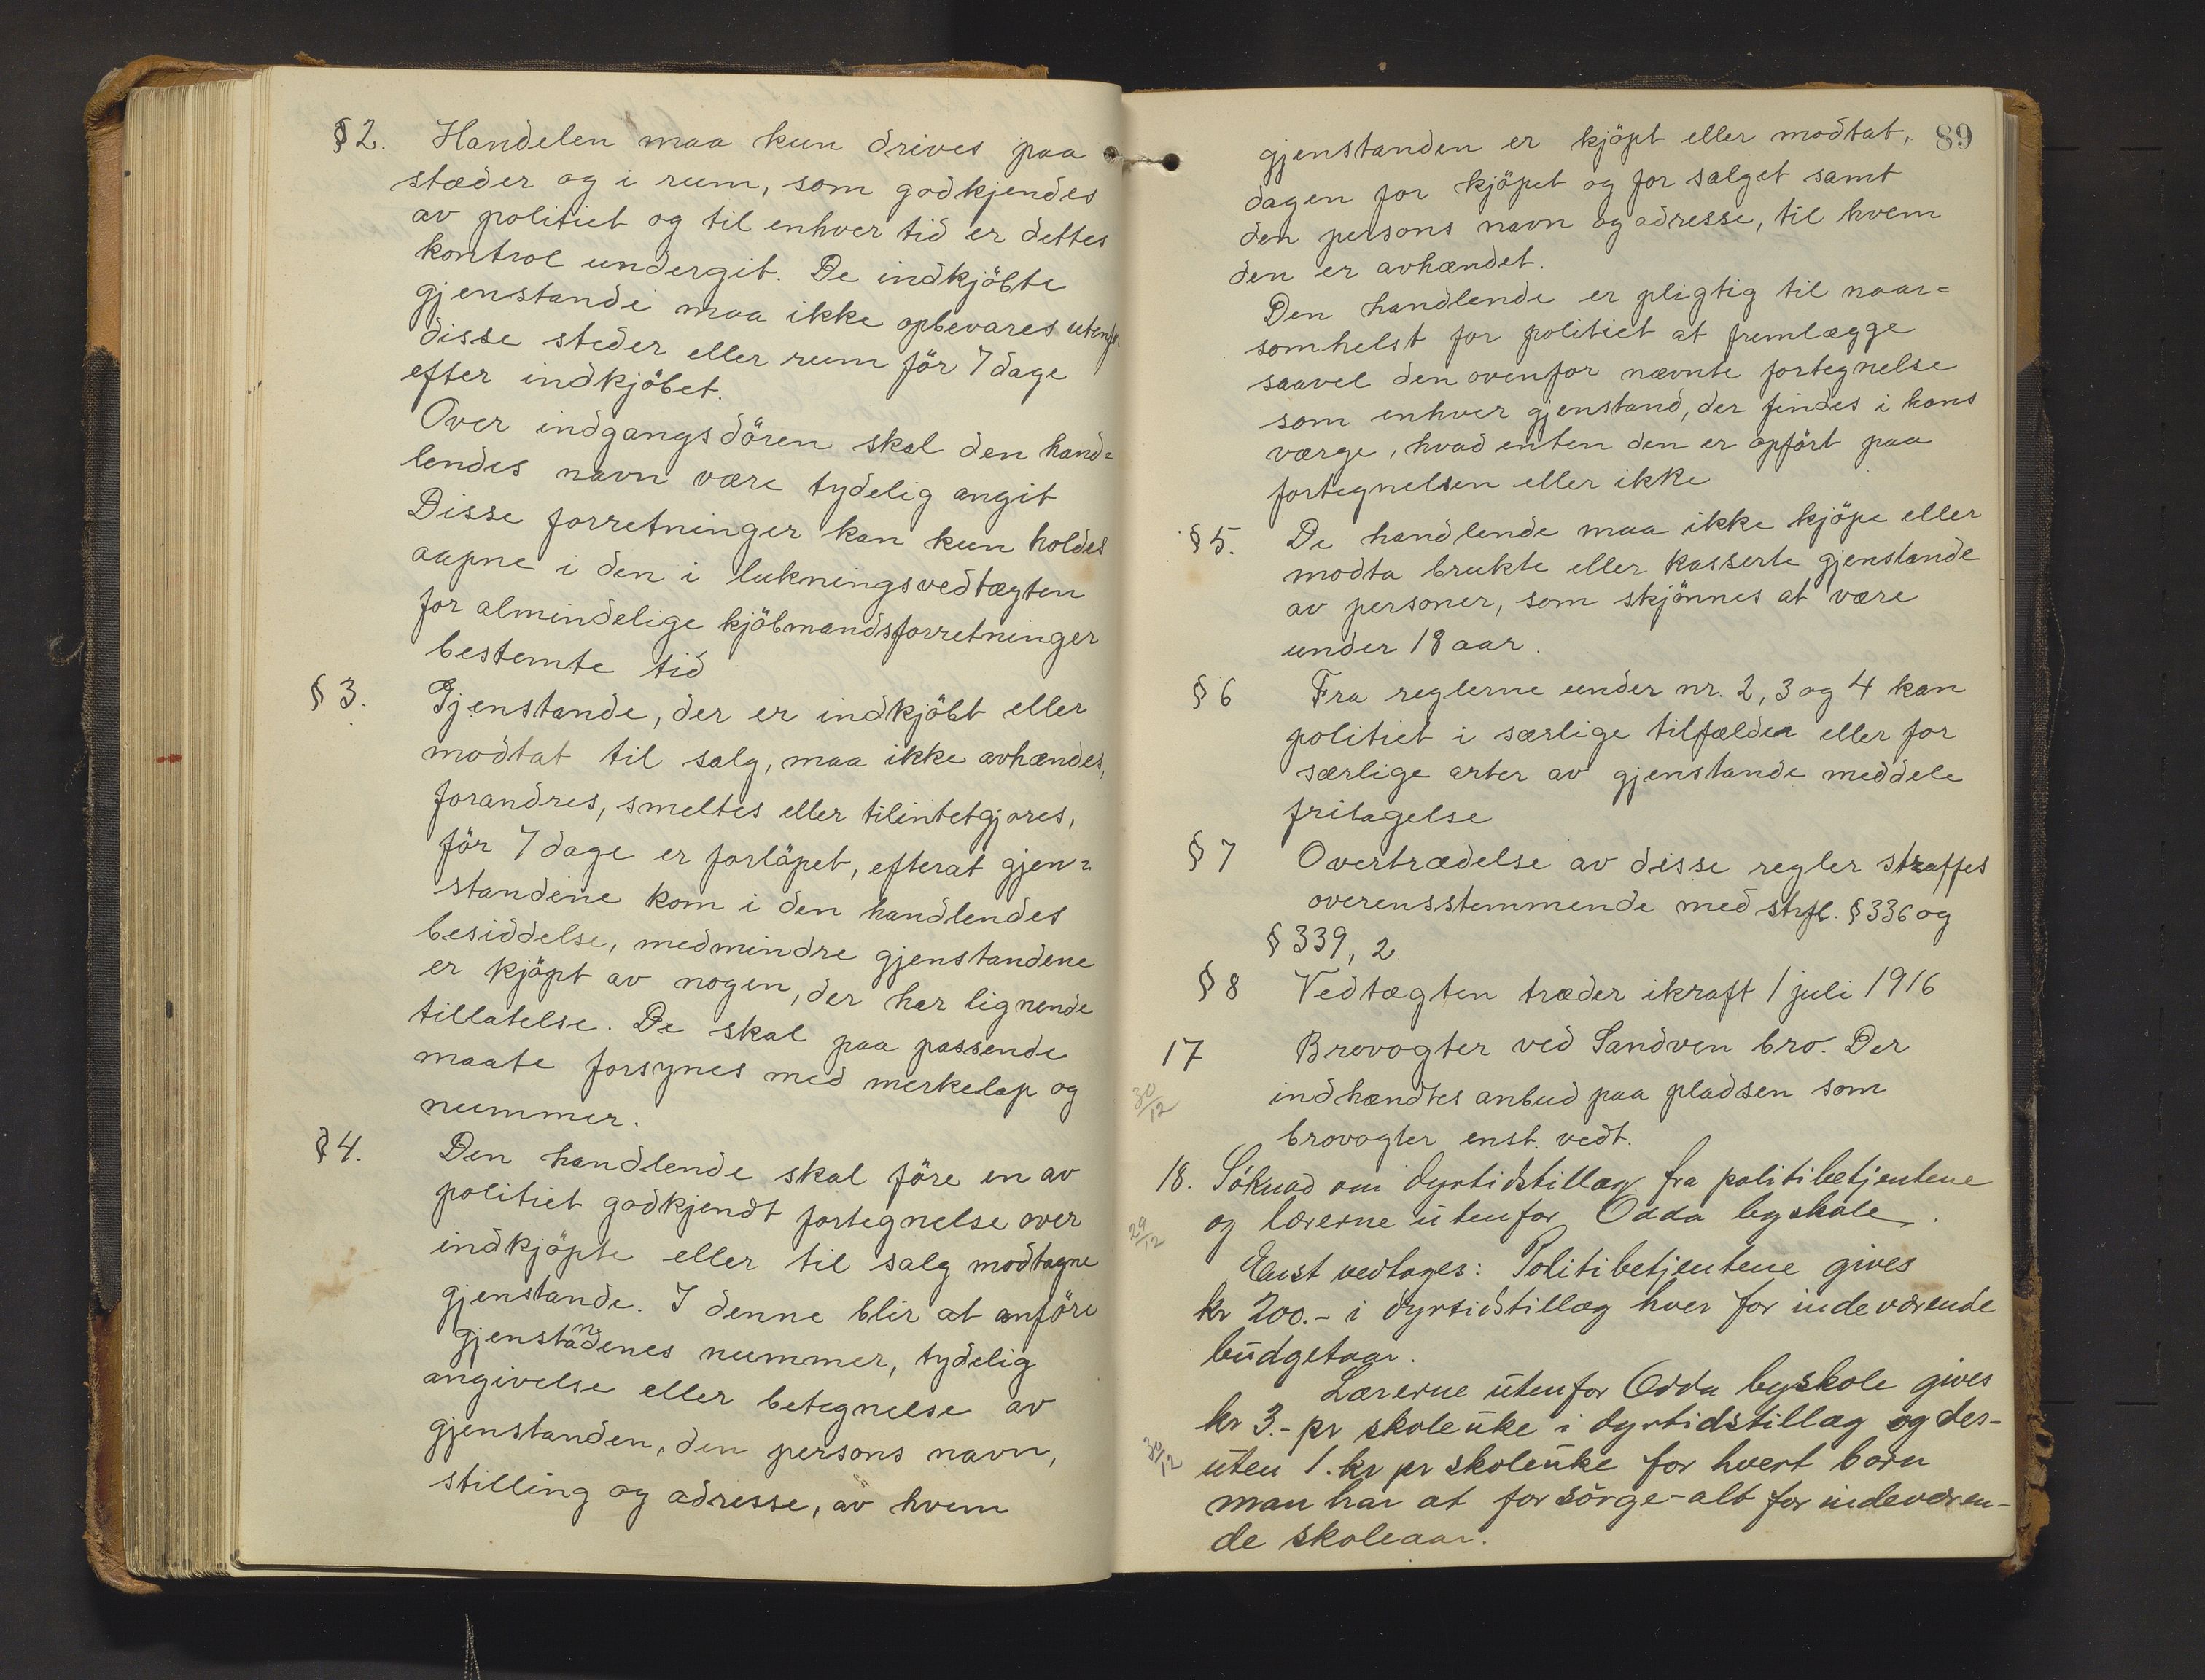 §2. Handelen maa kun drives paa
stæder og i rum, som godkjendes
av politiet og til enhver tid er dettes
kontrol undergit. De indkjöbte
gjenstande maa ikke opbevares utenfor
disse steder eller rum för 7 dage
efter indkjöbet.
Over indgangsdören skal den hand=
lendes navn være tydelig angit
Disse forretninger kan kun holdes
aapne i den i lukningsvedtægten
for almindelige kjöbmandsforretninger
bestemte tid
§ 3. Gjenstande, der er indkjöbt eller
modtat til salg, maa ikke avhændes,
forandres, smeltes eller tilintetgjores,
för 7 dage er forlöpet, efterat gjen=
standene kom i den handlendes
besiddelse, medmindre gjenstandene
er kjöpt av nogen, der har lignende
tillatelse. De skal paa passende
maate forsynes med merkelap og
nummer.
§4. Den handlende skal före en av
politiet godkjendt fortegnelse over
indkjöpte eller til salg modtagne
gjenstande. I denne blir at anföre
gjenstandenes nummer, tydelig
angivelse eller betegnelse av
gjenstanden, den persons navn,
stilling og adresse, av hvem
89
gjenstanden er kjöpt eller modtat,
dagen for kjöpet og for salget samt
den persons navn og adresse, til hvem
den er avhændet.
Den handlende er pligtig til naar=
somhelst for politiet at fremlægge
saavel den ovenfor nævnte fortegnelse
som enhver gjenstand, der findes i hans
værge, hvad enten den er opfört paa
fortegnelsen eller ikke
§ 5. De handlende maa ikke kjöpe eller
modta brukte eller kasserte gjenstande
av personer, som skjönnes at være
under 18 aar.
§ 6 Fra reglerne under nr. 2, 3 og 4 kan
politiet i særlige tilfælder eller for
særlige arter av gjenstande meddele
fritagelse
§ 7 Overtrædelse av disse regler straffes
overensstemmende med strfl. § 336 og
§ 339, 2
§ 8 Vedtægten træder ikraft 1 juli 1916
17 Brovogter ved Sandven bro. Der
30/12 indhændtes anbud paa pladsen som
brovogter enst. vedt.
18. Söknad om dyrtidstillæg fra politibetjentene
29/12 og lærerne utenfor Odda byskole.
Enst vedtages: Politibetjentene gives
kr 200.- i dyrtidstillæg hver for indeværende
budgetaar.
Lærerne utenfor Odda byskole gives
kr 3.- pr skoleuke i dyrtidstillæg og der-
30/12 uten 1. kr pr skoleuke for hvert barn
man har at forsörge - alt for indeværen-
de skoleaar.